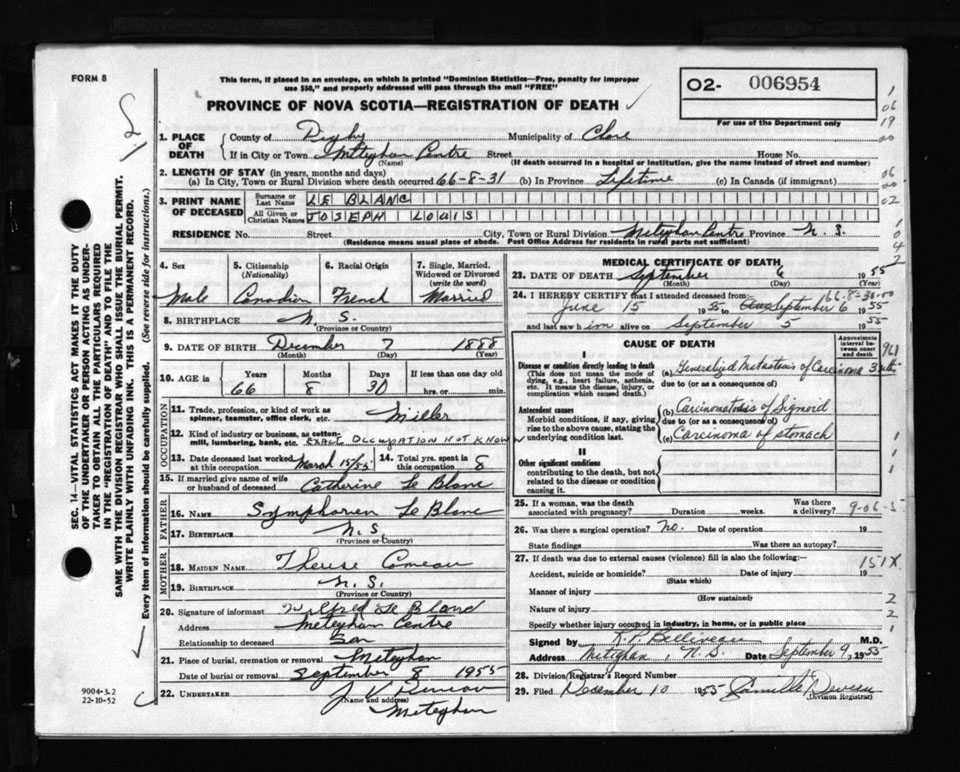 FORM 8
This form, if placed in an envelope, on which is printed "Dominion Statistics—Free, penalty for improper
use $50," and properly addressed will pass through the mail "FREE"
PROVINCE OF NOVA SCOTIA—REGISTRATION OF DEATH
O2- 006954
For use of the Department only
1. PLACE OF DEATH
County of Digby Municipality of Clare
If in City or Town Meteghan Centre Street House No.
(Name) (If death occurred in a hospital or institution, give the name instead of street and number)
2. LENGTH OF STAY (in years, months and days)
(a) In City, Town or Rural Division where death occurred 66-8-31 (b) In Province Lifetime (c) In Canada (if immigrant)
3. PRINT NAME OF DECEASED
Surname or Last Name LE BLANC
All Given or Christian Names JOSEPH LOUIS
RESIDENCE No. Street City, Town or Rural Division Meteghan Centre Province N. S.
(Residence means usual place of abode. Post Office Address for residents in rural parts not sufficient)
4. Sex
Male
5. Citizenship
(Nationality)
Canadian
6. Racial Origin
French
7. Single, Married, Widowed or Divorced
(write the word)
Married
8. BIRTHPLACE N. S.
(Province or Country)
9. DATE OF BIRTH December 7 1888
(Month) (Day) (Year)
10. AGE in Years Months Days If less than one day old
66 8 30 hrs. or min.
OCCUPATION
11. Trade, profession, or kind of work as
spinner, teamster, office clerk, etc. Miller
12. Kind of industry or business, as cotton-
mill, lumbering, bank, etc. EXACT OCCUPATION NOT KNOWN
13. Date deceased last worked at this occupation March 15/55
14. Total yrs. spent in this occupation 8
15. If married give name of wife or husband of deceased Catherine Le Blanc
FATHER
16. NAME Symphorien Le Blanc
17. BIRTHPLACE N. S.
(Province or Country)
MOTHER
18. MAIDEN NAME Therese Comeau
19. BIRTHPLACE N. S.
(Province or Country)
20. Signature of informant Wilfred Le Blanc
Address Meteghan Centre
Relationship to deceased Son
21. Place of burial, cremation or removal Meteghan
Date of burial or removal September 8 1955
22. UNDERTAKER
(Name and address)
Meteghan
MEDICAL CERTIFICATE OF DEATH
23. DATE OF DEATH September 6 1955
(Month) (Day) (Year)
66-8-30-00
24. I HEREBY CERTIFY that I attended deceased from:
June 15 1955 to September 6 1955
and last saw him alive on September 5 1955
CAUSE OF DEATH
Approximate interval between onset and death
I
Disease or condition directly leading to death
(This does not mean the mode of dying, e.g., heart failure, asthenia, etc. It means the disease, injury, or complication which caused death.)
(a) Generalized Metastasis of Carcinoma 3 mths
due to (or as a consequence of)
Antecedent causes
Morbid conditions, if any, giving rise to the above cause, stating the underlying condition last.
(b) Carcinomatosis of Sigmoid
due to (or as a consequence of)
(c) Carcinoma of stomach
II
Other significant conditions
contributing to the death, but not related to the disease or condition causing it.
25. If a woman, was the death associated with pregnancy? Duration weeks. Was there a delivery?
9-06-5
26. Was there a surgical operation? No. Date of operation 19
State findings Was there an autopsy?
27. If death was due to external causes (violence) fill in also the following:—
151X
Accident, suicide or homicide? Date of injury 19
(State which)
Manner of injury
(How sustained)
Nature of injury
Specify whether injury occurred in industry, in home, or in public place
Signed by R. P. Belliveau M.D.
Address Meteghan, N. S. Date September 9, 1955
28. Division Registrar's Record Number
29. Filed December 10 1955 Camille Deveau
(Division Registrar)
SEC. 14—VITAL STATISTICS ACT MAKES IT THE DUTY
OF THE UNDERTAKER OR PERSON ACTING AS UNDER-
TAKER TO OBTAIN ALL THE PARTICULARS REQUIRED
IN THE "REGISTRATION OF DEATH" AND TO FILE THE
SAME WITH THE DIVISION REGISTRAR WHO SHALL ISSUE THE BURIAL PERMIT.
WRITE PLAINLY WITH UNFADING INK. THIS IS A PERMANENT RECORD.
Every item of information should be carefully supplied. (See reverse side for instructions.)
9004-3.2
22-10-52